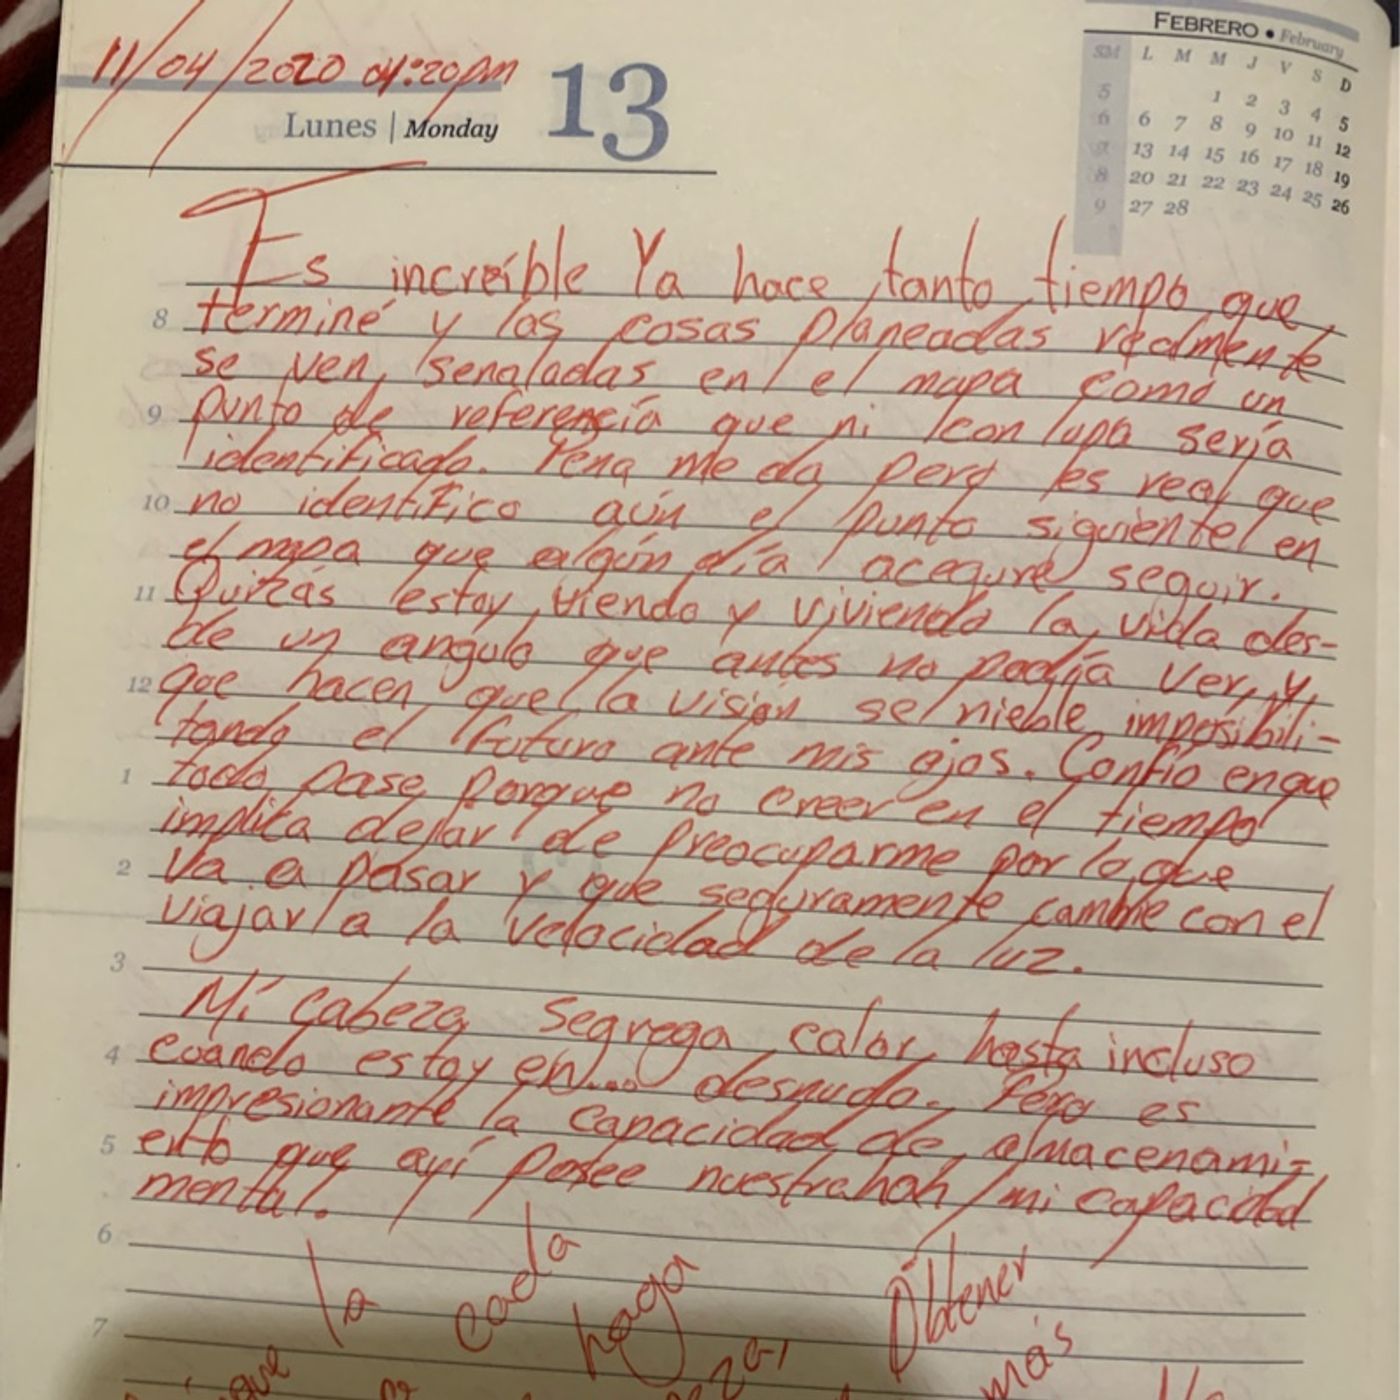 FEBRERO • February
SM L M M J V S D
5 1 2 3 4 5
6 6 7 8 9 10 11 12
7 13 14 15 16 17 18 19
8 20 21 22 23 24 25 26
9 27 28
11/04/2020 04:20pm
Lunes | Monday 13
Es increíble Ya hace tanto tiempo que
8 terminé y las cosas planeadas realmente
se ven señaladas en el mapa como un
9 punto de referencia que ni con lupa sería
identificado. Pena me da pero es real que
10 no identifico aún el punto siguiente en
el mapa que algún día aceguré seguir.
11 Quizás estoy viendo y viviendo la vida des-
de un angulo que antes no podía ver, y
12 que hacen que la visión se nieble imposibili-
tando el futuro ante mis ojos. Confío en que
1 todo pase porque no creer en el tiempo
implica dejar de preocuparme por lo que
2 va a pasar y que seguramente cambie con el
viajar a la velocidad de la luz.
3
Mi cabeza segrega calor hasta incluso
4 cuando estoy en... desnudo. Pero es
impresionante la capacidad de almacenami-
5 ento que ayí posee nuestra hah/mi capacidad
mental.
6
la cada haga Obtener
7
que más